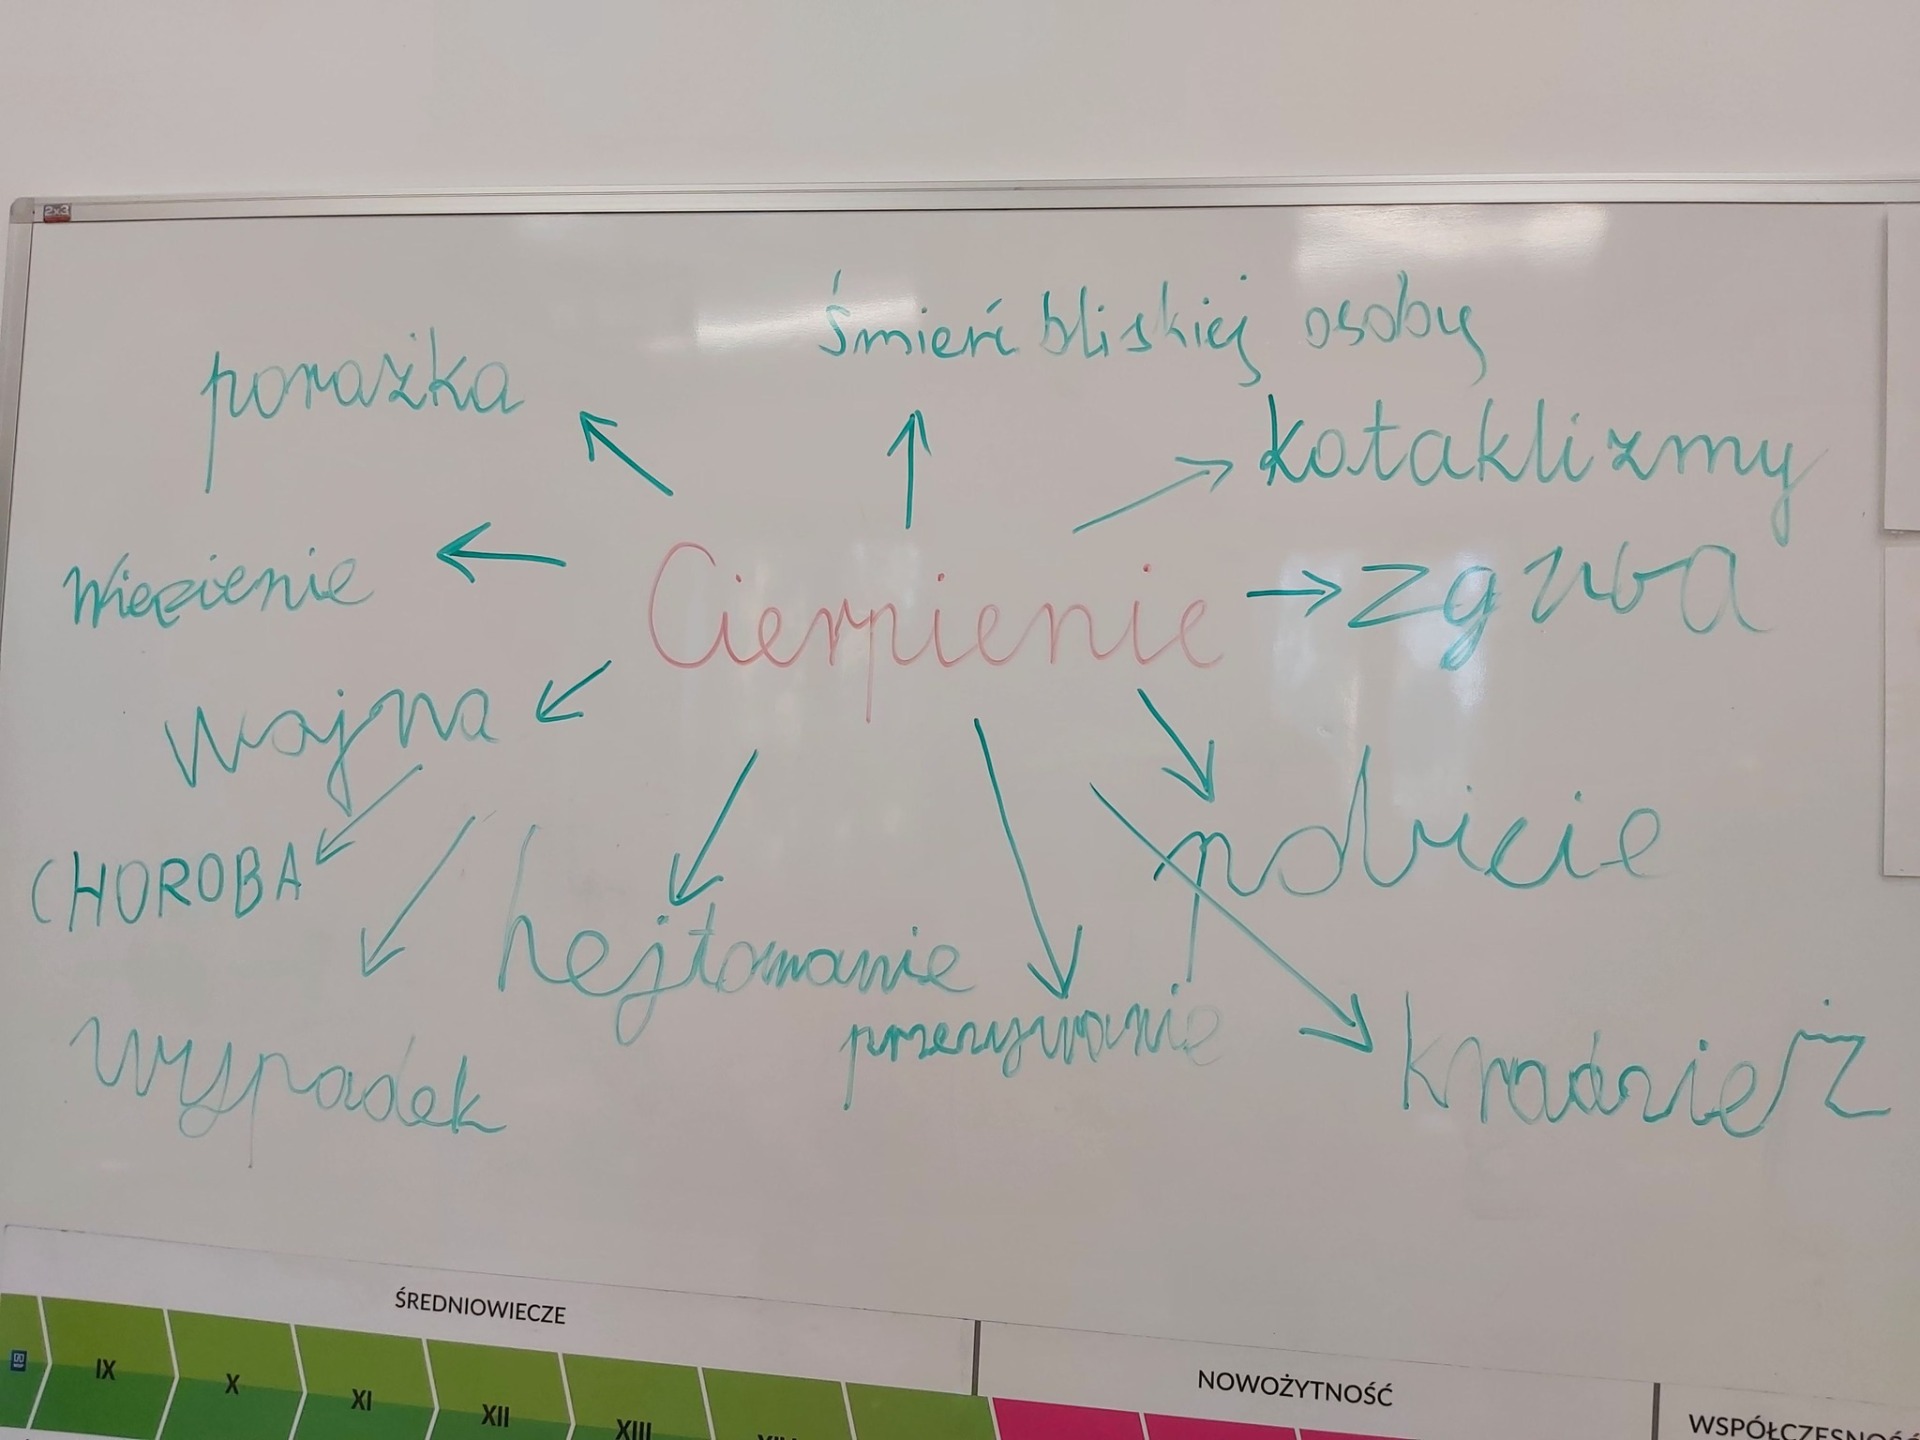 2x3
śmierć bliskiej osoby
porażka
kataklizmy
Więzienie
Cierpienie
zguba
wojna
pobicie
CHOROBA
hejtowanie
przezywanie
kradzież
wypadek
ŚREDNIOWIECZE
NOWOŻYTNOŚĆ
IX X XI XII XIII